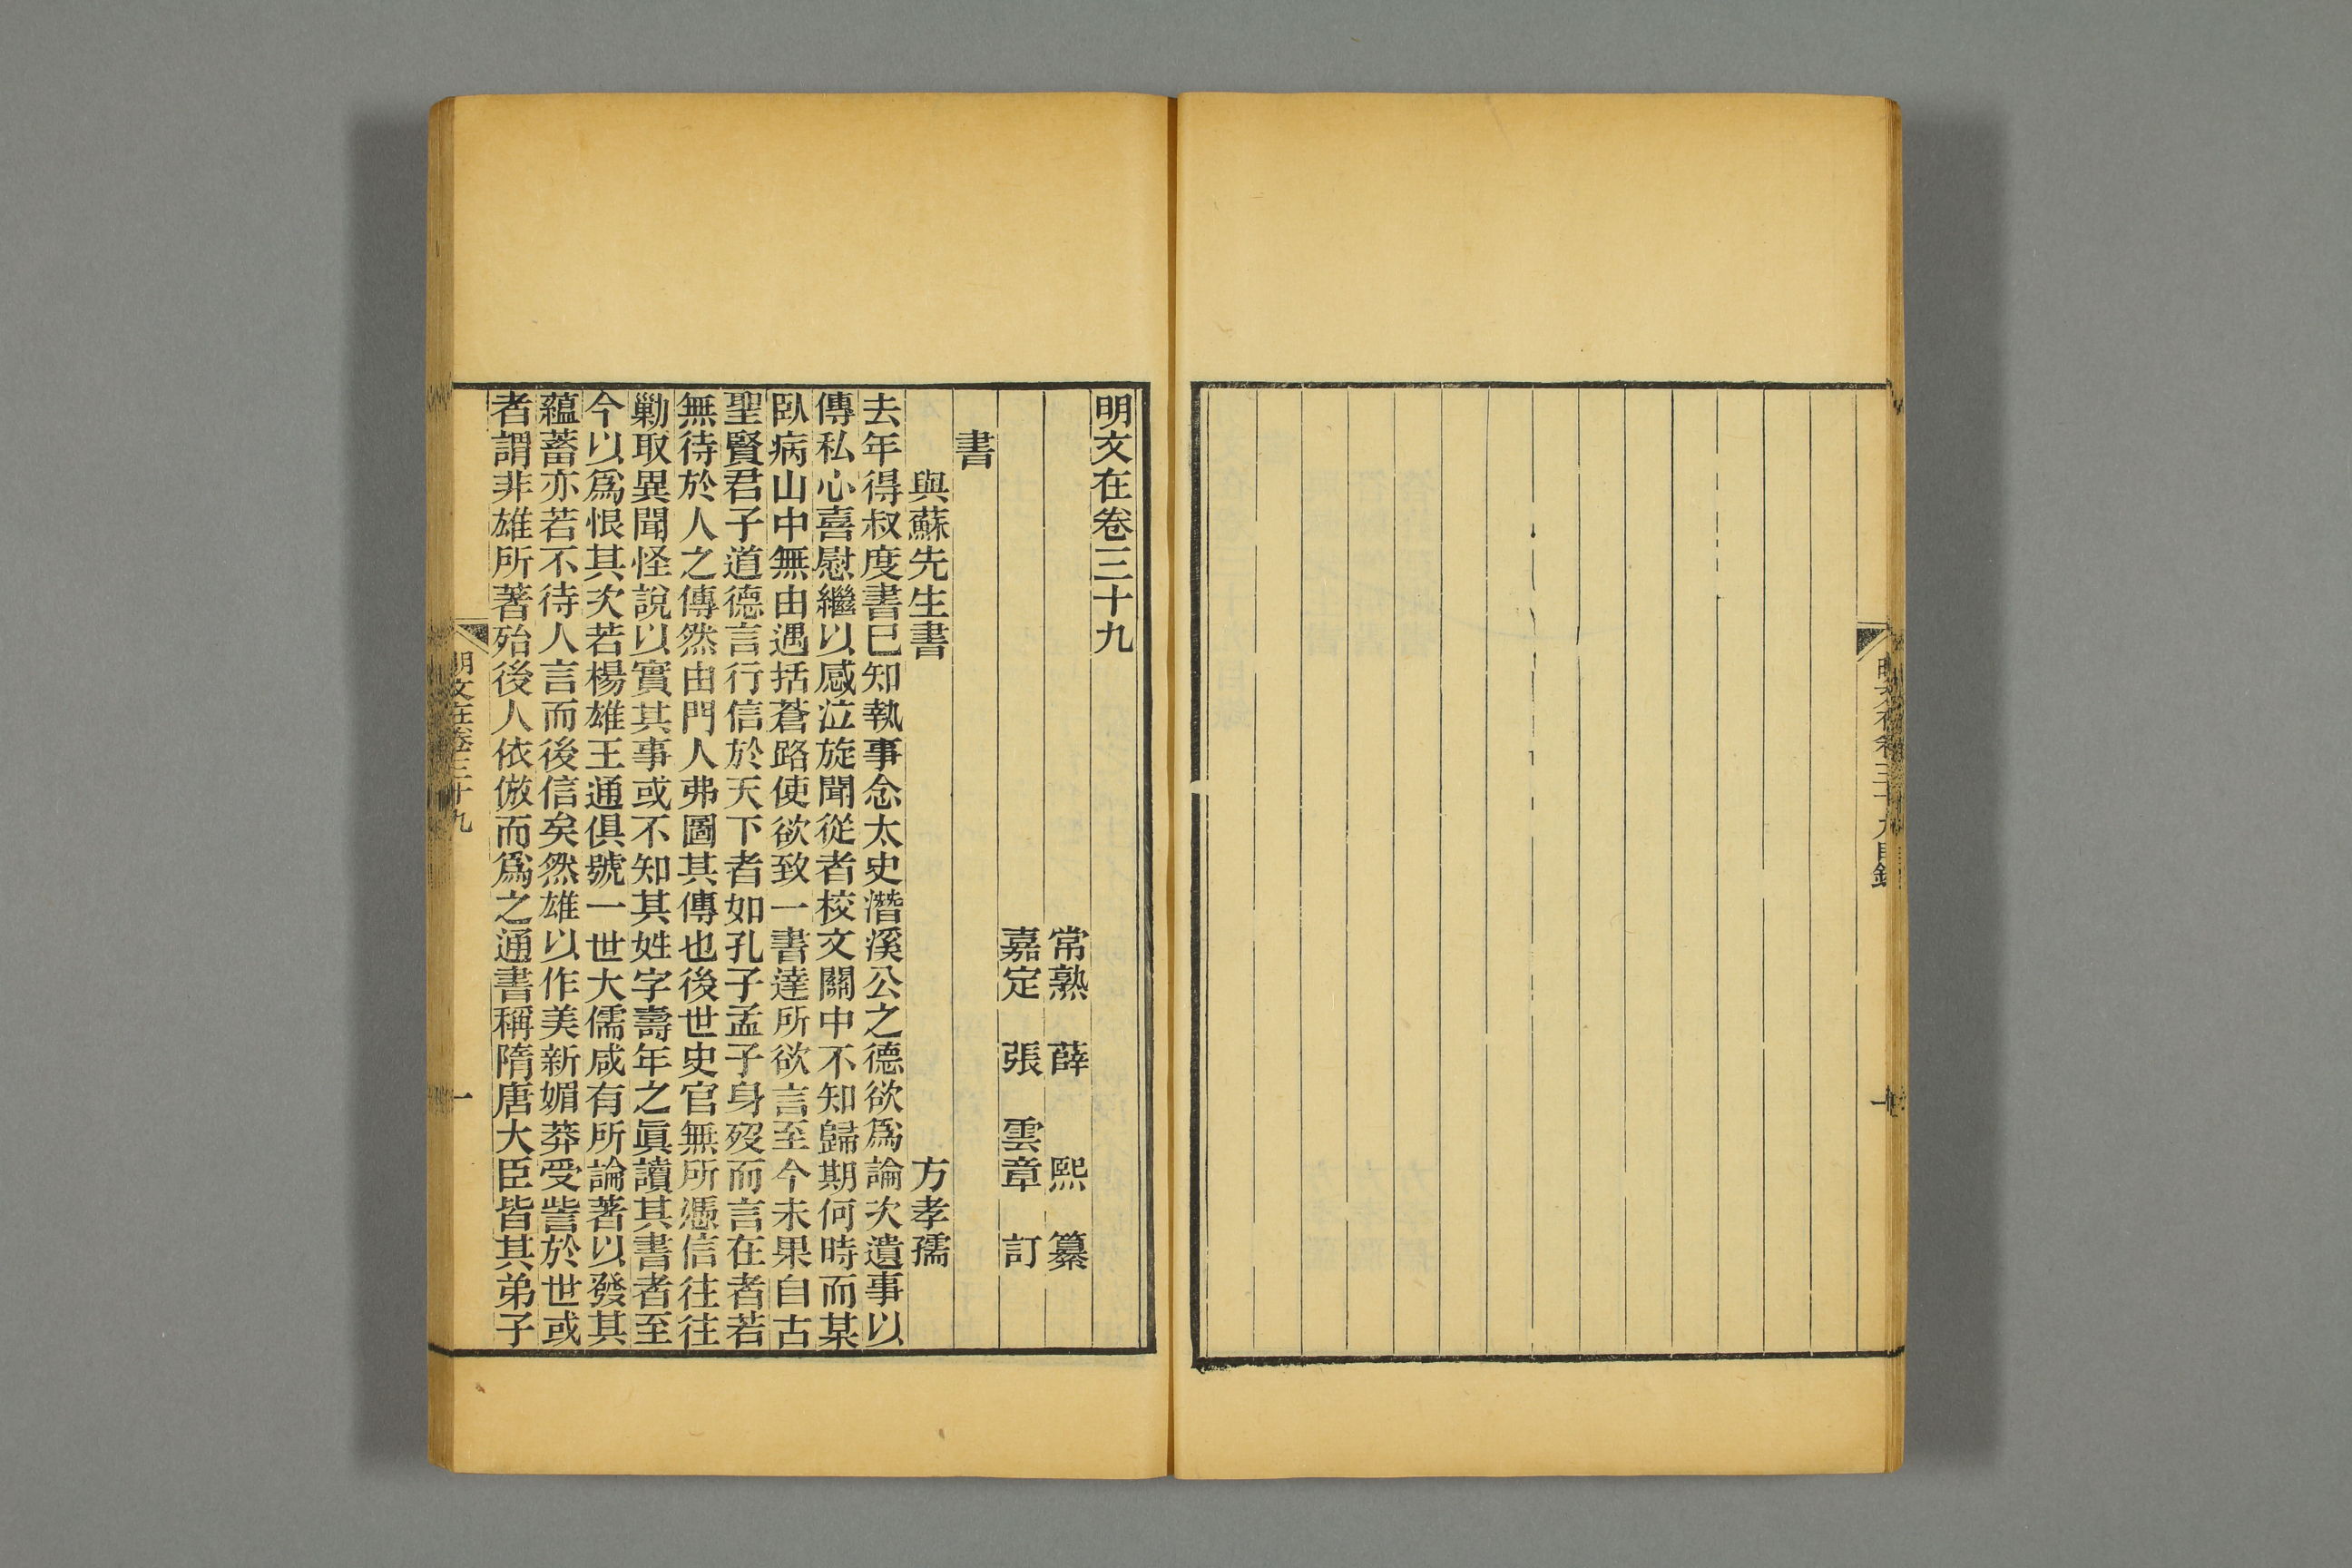 明文在卷三十九
常熟　薛　熙　纂
嘉定　張　雲章　訂
書
與蘇先生書　方孝孺
去年得叔度書已知執事念太史潛溪公之德欲爲論次遺事以
傳私心喜慰繼以感泣旋聞從者校文關中不知歸期何時而某
臥病山中無由遇括蒼路使欲致一書達所欲言至今未果自古
聖賢君子道德言行信於天下者如孔子孟子身歿而言在者若
無待於人之傳然由門人弗圖其傳也後世史官無所憑信往往
勦取異聞怪說以實其事或不知其姓字壽年之眞讀其書者至
今以爲恨其次若楊雄王通俱號一世大儒咸有所論著以發其
蘊蓄亦若不待人言而後信矣然雄以作美新媚莽受訾於世或
者謂非雄所著殆後人依倣而爲之通書稱隋唐大臣皆其弟子
明文在卷三十九
一